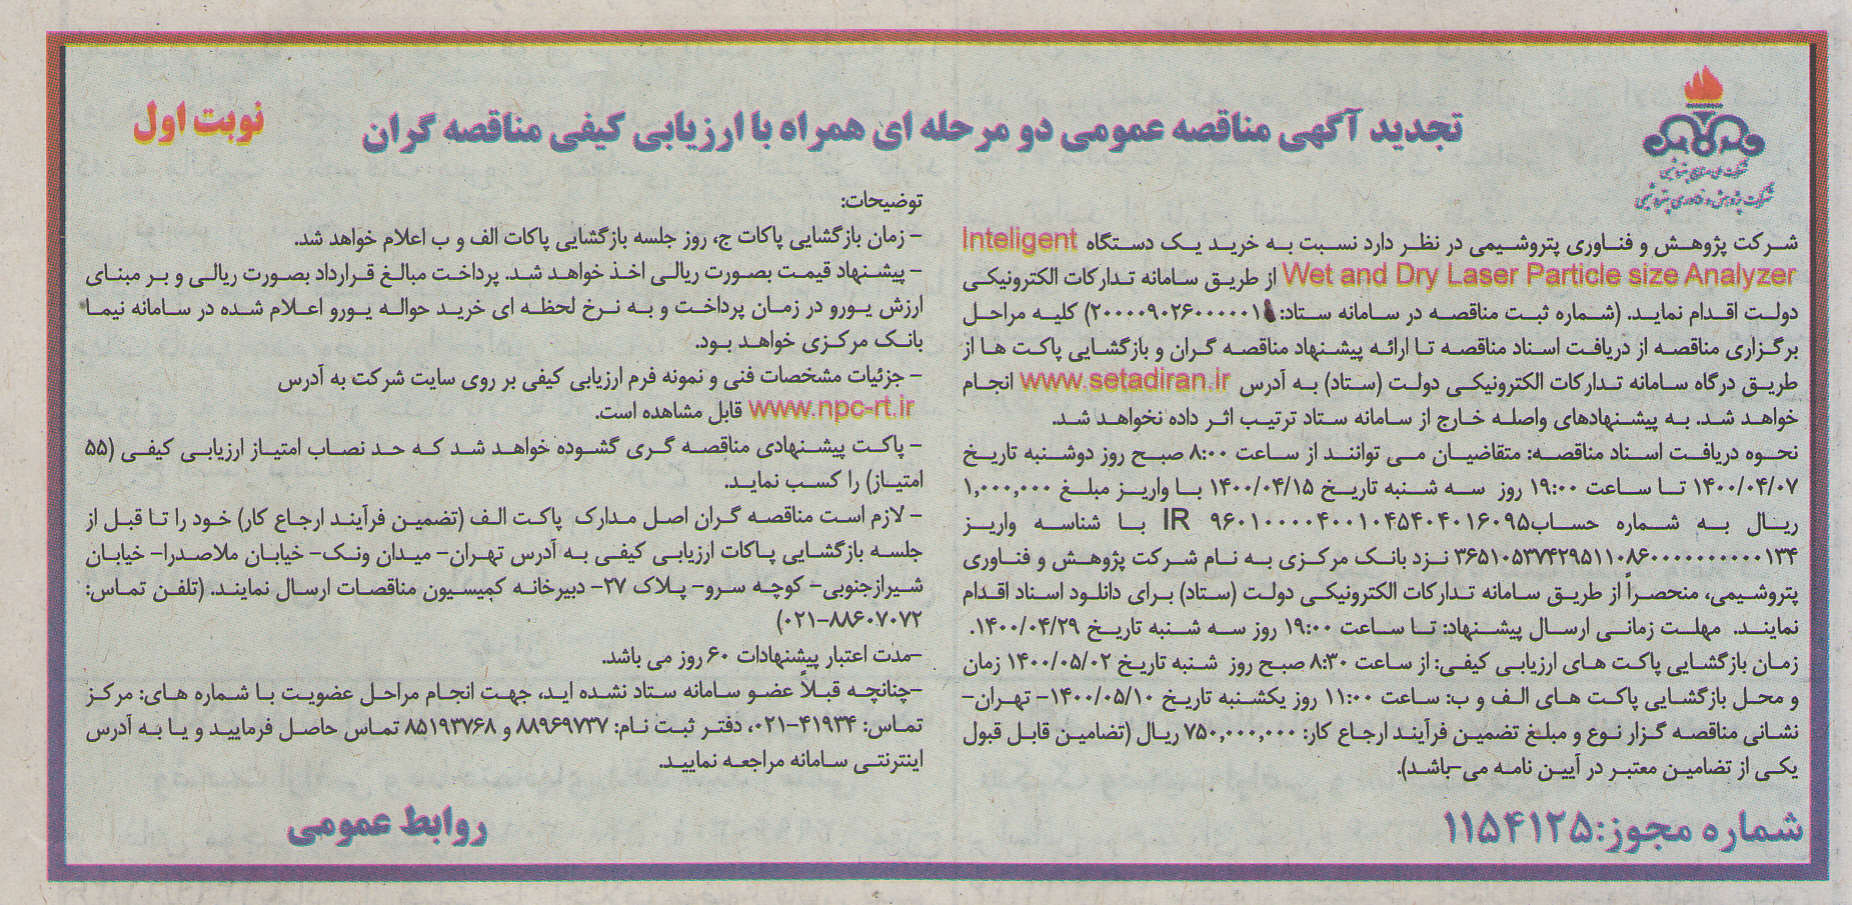 تجدید آگهی مناقصه عمومی دو مرحله ای همراه با ارزیابی کیفی مناقصه گران
نوبت اول
شرکت ملی صنایع پتروشیمی
شرکت پژوهش و فناوری پتروشیمی
شرکت پژوهش و فناوری پتروشیمی در نظر دارد نسبت به خرید یک دستگاه Inteligent
Wet and Dry Laser Particle size Analyzer از طریق سامانه تدارکات الکترونیکی
دولت اقدام نماید. (شماره ثبت مناقصه در سامانه ستاد: ) کلیه مراحل
برگزاری مناقصه از دریافت اسناد مناقصه تا ارائه پیشنهاد مناقصه گران و بازگشایی پاکت ها از
طریق درگاه سامانه تدارکات الکترونیکی دولت (ستاد) به آدرس www.setadiran.ir انجام
خواهد شد. به پیشنهادهای واصله خارج از سامانه ستاد ترتیب اثر داده نخواهد شد.
نحوه دریافت اسناد مناقصه: متقاضیان می توانند از ساعت ۸:۰۰ صبح روز دوشنبه تاریخ
۱۴۰۰/۰۴/۰۷ تا ساعت ۱۹:۰۰ روز سه شنبه تاریخ ۱۴۰۰/۰۴/۱۵ با واریز مبلغ ۱,۰۰۰,۰۰۰
ریال به شماره حساب IR ۹۶۰۱۰۰۰۰۴۰۰۱۰۴۵۴۰۴۰۱۶۰۹۵ با شناسه واریز
۳۶۵۱۰۵۳۷۴۲۹۵۱۱۰۸۶۰۰۰۰۰۰۰۰۰۰۱۳۴ نزد بانک مرکزی به نام شرکت پژوهش و فناوری
پتروشیمی، منحصراً از طریق سامانه تدارکات الکترونیکی دولت (ستاد) برای دانلود اسناد اقدام
نمایند. مهلت زمانی ارسال پیشنهاد: تا ساعت ۱۹:۰۰ روز سه شنبه تاریخ ۱۴۰۰/۰۴/۲۹.
زمان بازگشایی پاکت های ارزیابی کیفی: از ساعت ۸:۳۰ صبح روز شنبه تاریخ ۱۴۰۰/۰۵/۰۲ زمان
و محل بازگشایی پاکت های الف و ب: ساعت ۱۱:۰۰ روز یکشنبه تاریخ ۱۴۰۰/۰۵/۱۰- تهران-
نشانی مناقصه گزار نوع و مبلغ تضمین فرآیند ارجاع کار: ۷۵۰,۰۰۰,۰۰۰ ریال (تضامین قابل قبول
یکی از تضامین معتبر در آیین نامه می-باشد).
شماره مجوز:۱۱۵۴۱۲۵
توضیحات:
- زمان بازگشایی پاکات ج، روز جلسه بازگشایی پاکات الف و ب اعلام خواهد شد.
- پیشنهاد قیمت بصورت ریالی اخذ خواهد شد. پرداخت مبالغ قرارداد بصورت ریالی و بر مبنای
ارزش یورو در زمان پرداخت و به نرخ لحظه ای خرید حواله یورو اعلام شده در سامانه نیما
بانک مرکزی خواهد بود.
- جزئیات مشخصات فنی و نمونه فرم ارزیابی کیفی بر روی سایت شرکت به آدرس
www.npc-rt.ir قابل مشاهده است.
- پاکت پیشنهادی مناقصه گری گشوده خواهد شد که حد نصاب امتیاز ارزیابی کیفی (۵۵
امتیاز) را کسب نماید.
- لازم است مناقصه گران اصل مدارک پاکت الف (تضمین فرآیند ارجاع کار) خود را تا قبل از
جلسه بازگشایی پاکات ارزیابی کیفی به آدرس تهران- میدان ونک- خیابان ملاصدرا- خیابان
شیرازجنوبی- کوچه سرو- پلاک ۲۷- دبیرخانه کمیسیون مناقصات ارسال نمایند. (تلفن تماس:
۰۲۱-۸۸۶۰۷۰۷۲)
-مدت اعتبار پیشنهادات ۶۰ روز می باشد.
-چنانچه قبلاً عضو سامانه ستاد نشده اید، جهت انجام مراحل عضویت با شماره های: مرکز
تماس: ۰۲۱-۴۱۹۳۴، دفتر ثبت نام: ۸۸۹۶۹۷۳۷ و ۸۵۱۹۳۷۶۸ تماس حاصل فرمایید و یا به آدرس
اینترنتی سامانه مراجعه نمایید.
روابط عمومی